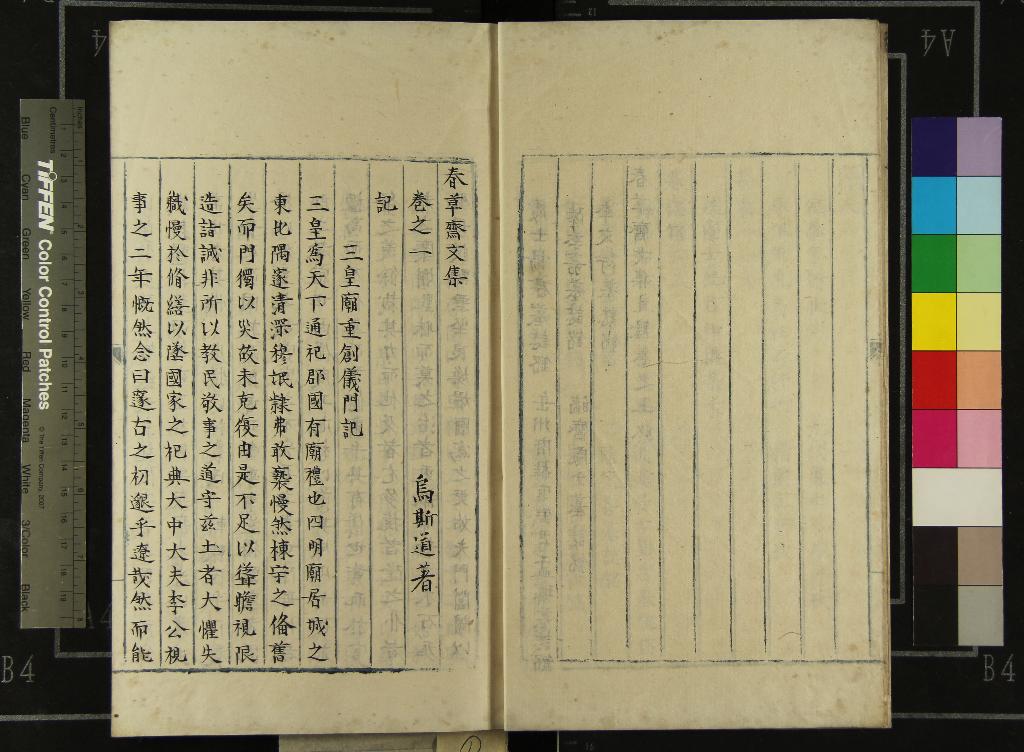 春草齋文集
卷之一　　烏斯道著
記
三皇廟重創儀門記
三皇爲天下通祀郡國有廟禮也四明廟居城之
東北隅邃清深穆氓隸弗敢褻慢然棟宇之偹舊
矣而門獨以災故未克復由是不足以聳瞻視限
造詣誠非所以教民敬事之道守兹土者大懼失
職慢扵脩繕以墜國家之祀典大中大夫李公視
事之二年慨然念曰邃古之初邈乎遼哉然而能
TIFFEN Color Control Patches
© The Tiffen Company, 2007
Centimetres
Inches
Blue
Cyan
Green
Yellow
Red
Magenta
White
3/Color
Black
A4
B4
B4